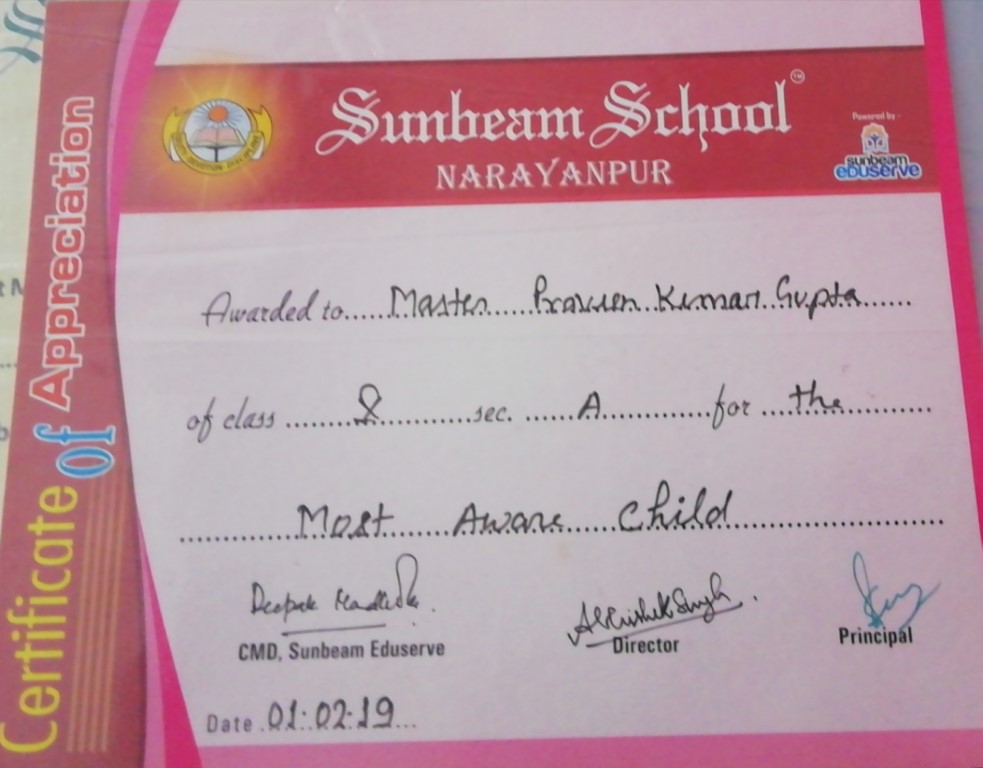 Certificate of Appreciation
Sunbeam School™
NARAYANPUR
Powered by -
sunbeam
eDUserve
Awarded to.....Master......Praveen Kumar Gupta......
of class ........8..........sec. ......A............for ...the..........
Most Aware Child
Deepak
CMD, Sunbeam Eduserve
Abhishek Singh
Director
Principal
Date .01:02:19...